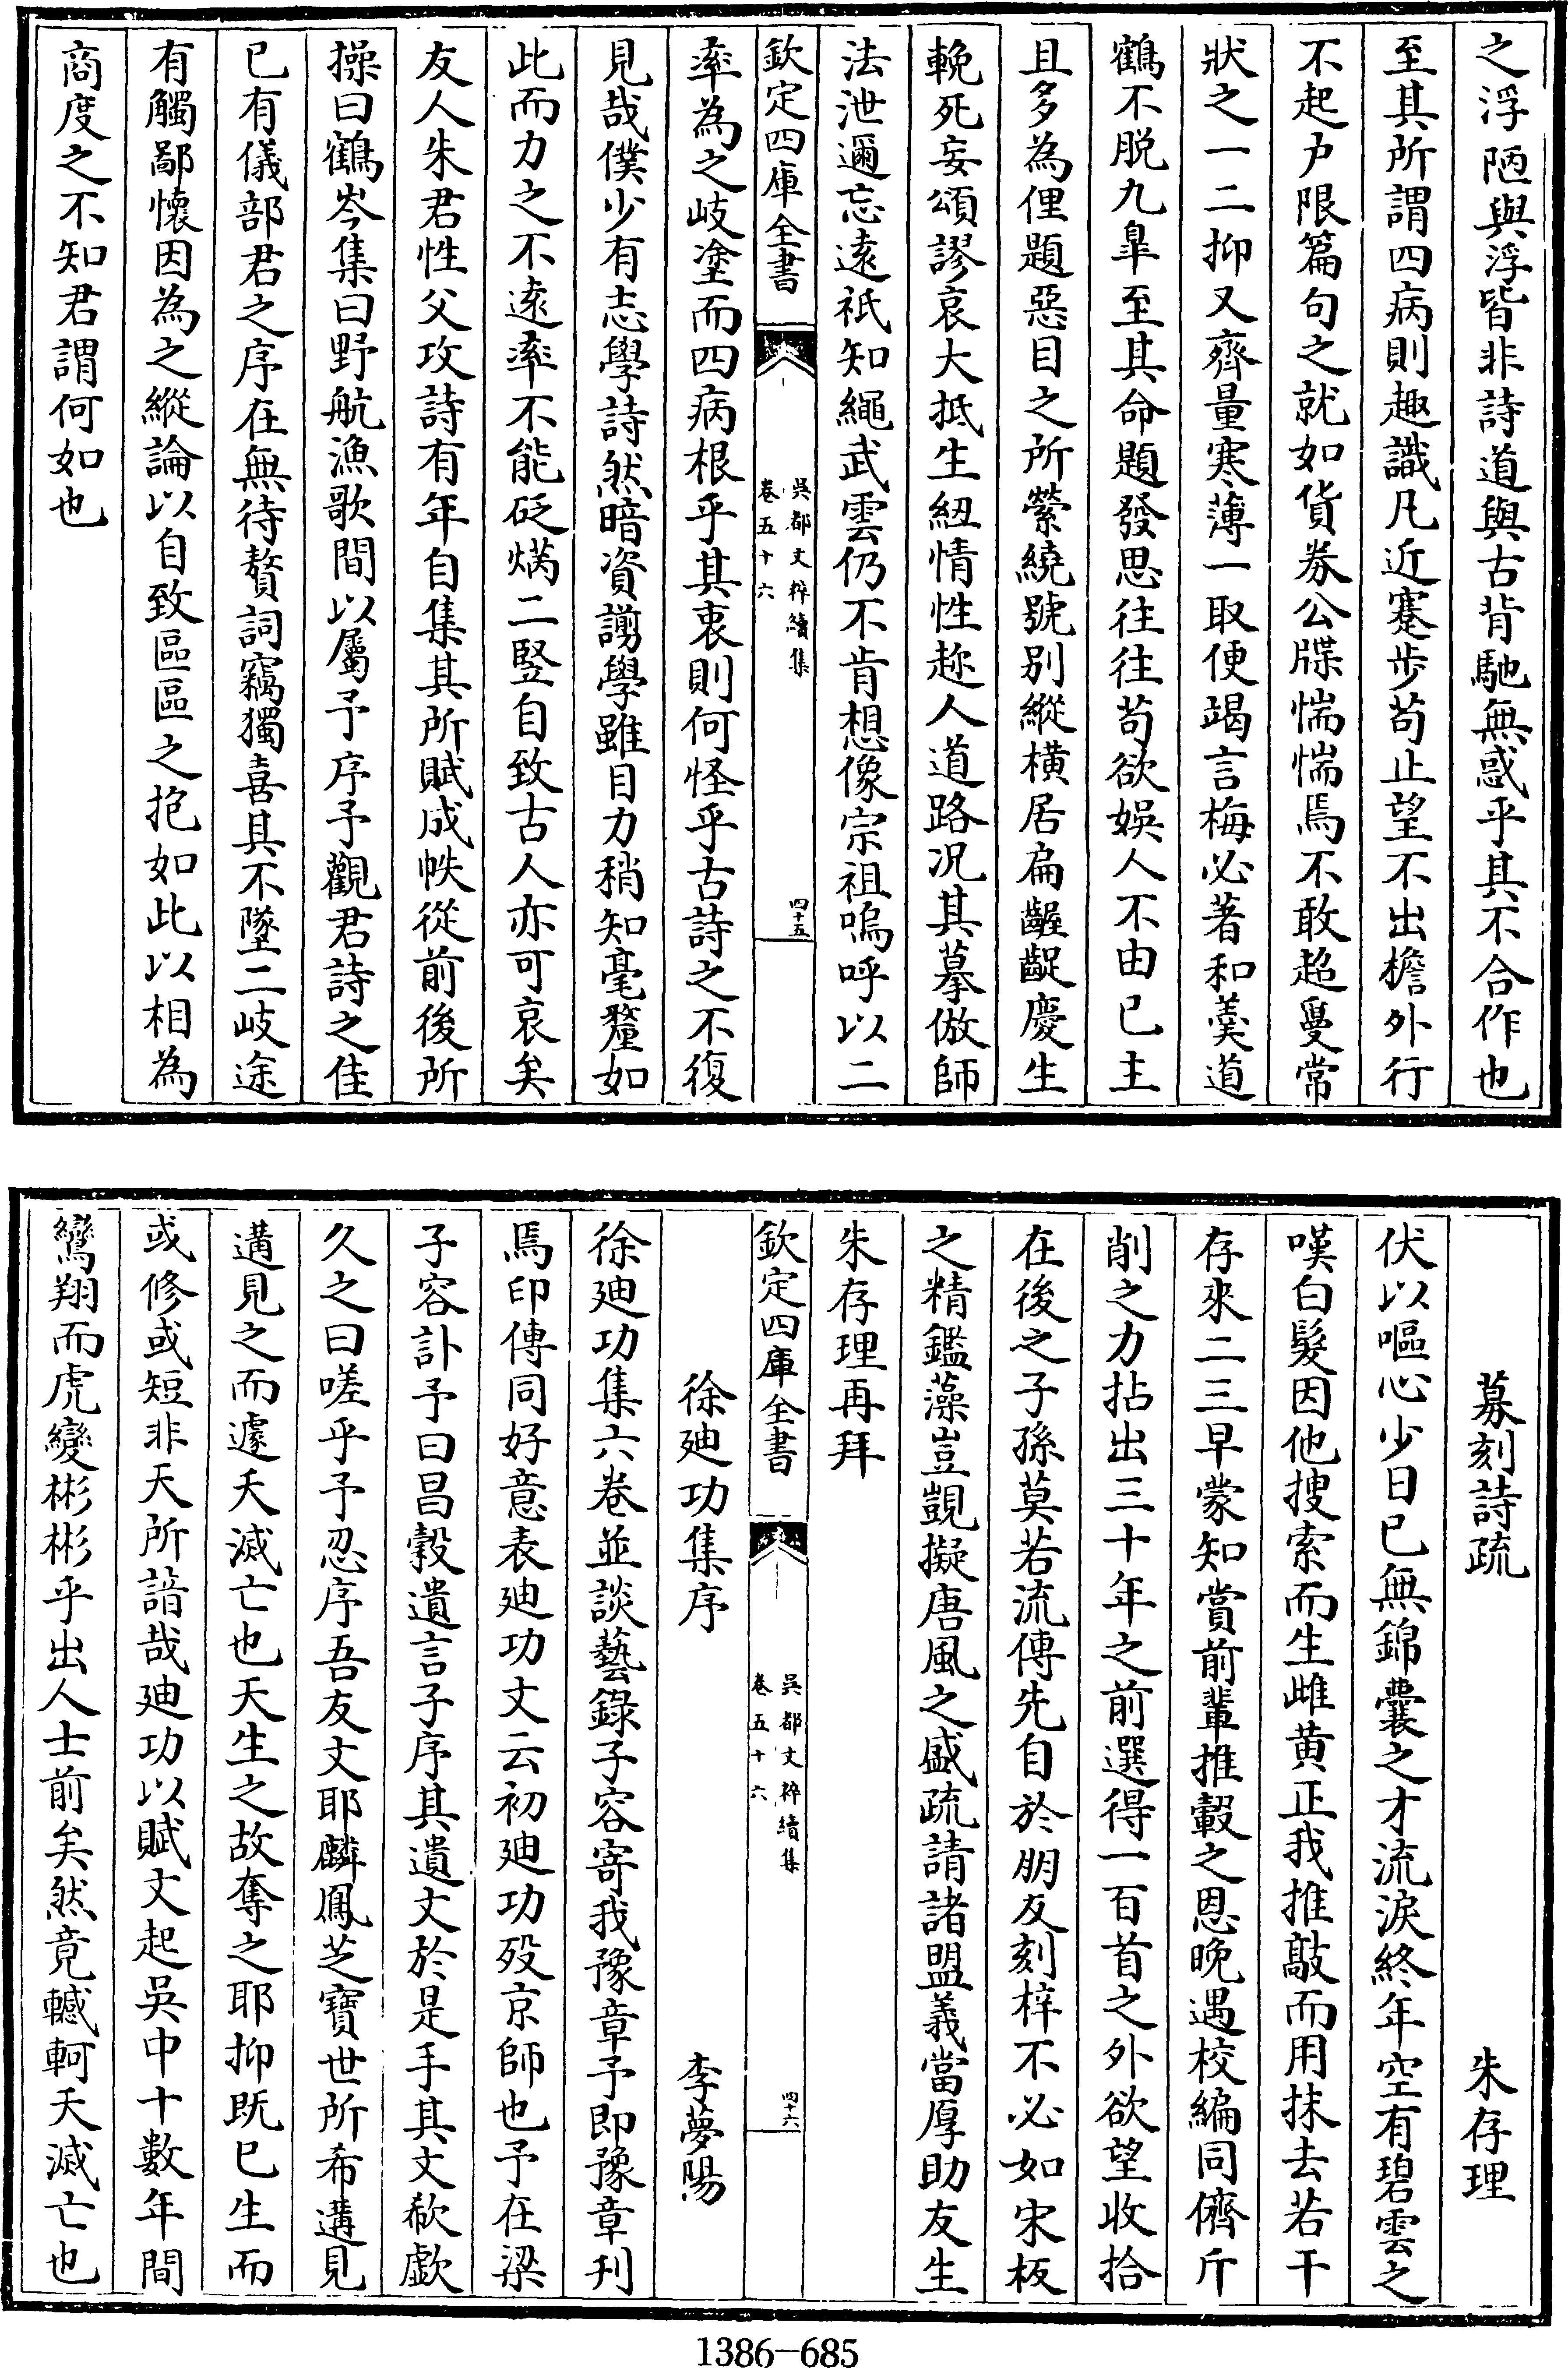 之浮陋與浮皆非詩道與古背馳無惑乎其不合作也
至其所謂四病則趣識凡近蹇步苟止望不出檐外行
不起户限篇句之就如貨券公牒惴惴焉不敢超㕙常
狀之一二抑又齊量寒薄一取便竭言梅必著和羹道
鶴不脱九臯至其命題發思往往苟欲娱人不由已主
且多為俚題惡目之所縈繞號别縱横居扁齷齪慶生
輓死妄頌謬哀大抵生紐情性趂人道路况其摹倣師
法泄邇忘逺祇知繩武雲仍不肯想像宗祖嗚呼以二
欽定四庫全書
吳都文粹續集
卷五十六
四十五
率為之岐塗而四病根乎其衷則何怪乎古詩之不復
見哉僕少有志學詩然暗資謭學雖目力稍知毫釐如
此而力之不逺率不能砭焫二竪自致古人亦可哀矣
友人朱君性父攻詩有年自集其所賦成帙從前後所
操曰鶴岑集曰野航漁歌間以屬予序予觀君詩之佳
已有儀部君之序在無待贅詞竊獨喜其不墜二岐途
有觸鄙懷因為之縱論以自致區區之抱如此以相為
商度之不知君謂何如也
募刻詩疏
朱存理
伏以嘔心少日已無錦囊之才流淚終年空有碧雲之
嘆白髮因他搜索而生雌黄正我推敲而用抹去若干
存來二三早蒙知賞前輩推轂之恩晚遇校編同儕斤
削之力拈出三十年之前選得一百首之外欲望收拾
在後之子孫莫若流傳先自於朋友刻梓不必如宋板
之精鑑藻豈覬擬唐風之盛疏請諸盟義當厚助友生
朱存理再拜
欽定四庫全書
吳都文粹續集
卷五十六
四十六
徐廸功集序
李夢陽
徐廸功集六卷並談藝錄子容寄我豫章予即豫章刋
焉印傳同好意表廸功文云初廸功殁京師也予在梁
子容訃予曰昌穀遺言子序其遺文於是手其文欷歔
久之曰嗟乎予忍序吾友文耶麟鳳芝寶世所希遘見
遘見之而遽夭滅亡也天生之故奪之耶抑既已生而
或修或短非天所諳哉廸功以賦文起吳中十數年間
鸞翔而虎變彬彬乎出人士前矣然竟轗軻夭滅亡也
1386-685